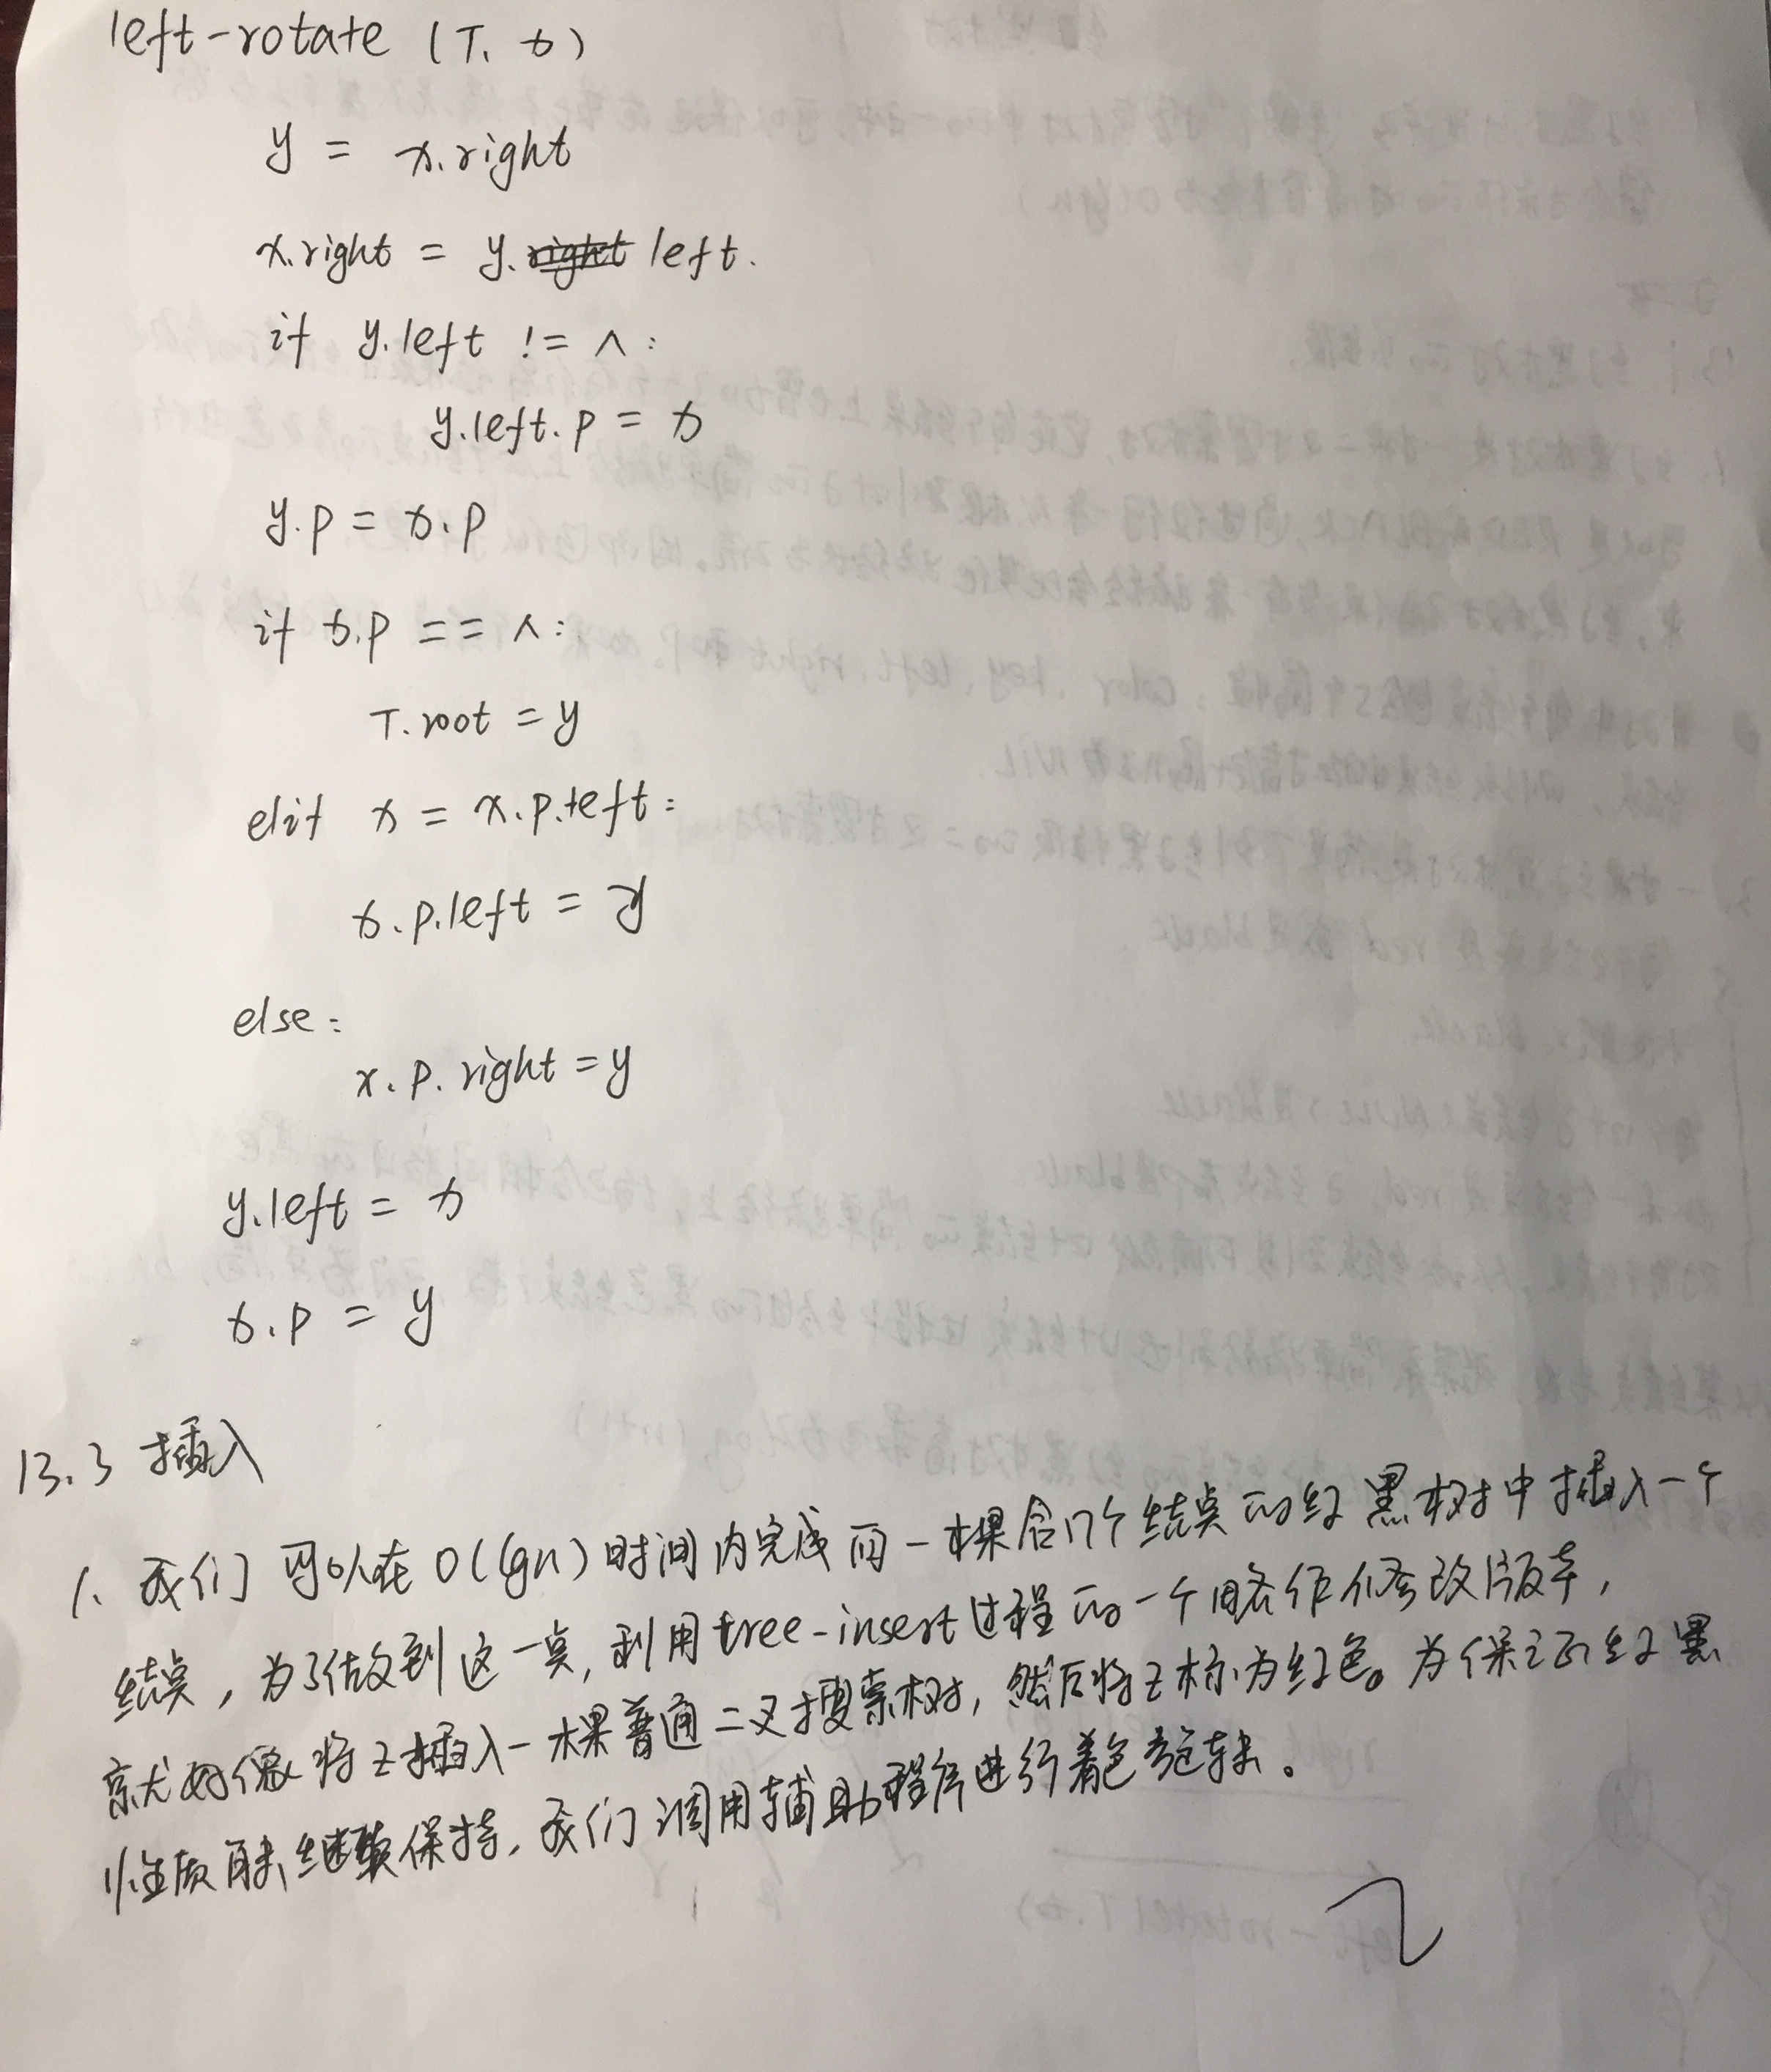 left-rotate (T, x)
y = x.right
x.right = y.left.
if y.left != ∧:
y.left.p = x
y.p = x.p
if x.p == ∧:
T.root = y
elif x = x.p.left:
x.p.left = y
else:
x.p.right = y
y.left = x
x.p = y
13.3 插入
1. 我们可以在O(lgn)时间内完成向一棵含n个结点的红黑树中插入一个
结点，为了做到这一点，利用tree-insert过程的一个略作修改版本，
就好像将z插入一棵普通二叉搜索树，然后将z标为红色。为保证红黑
性质能继续保持，我们调用辅助程序进行着色旋转。